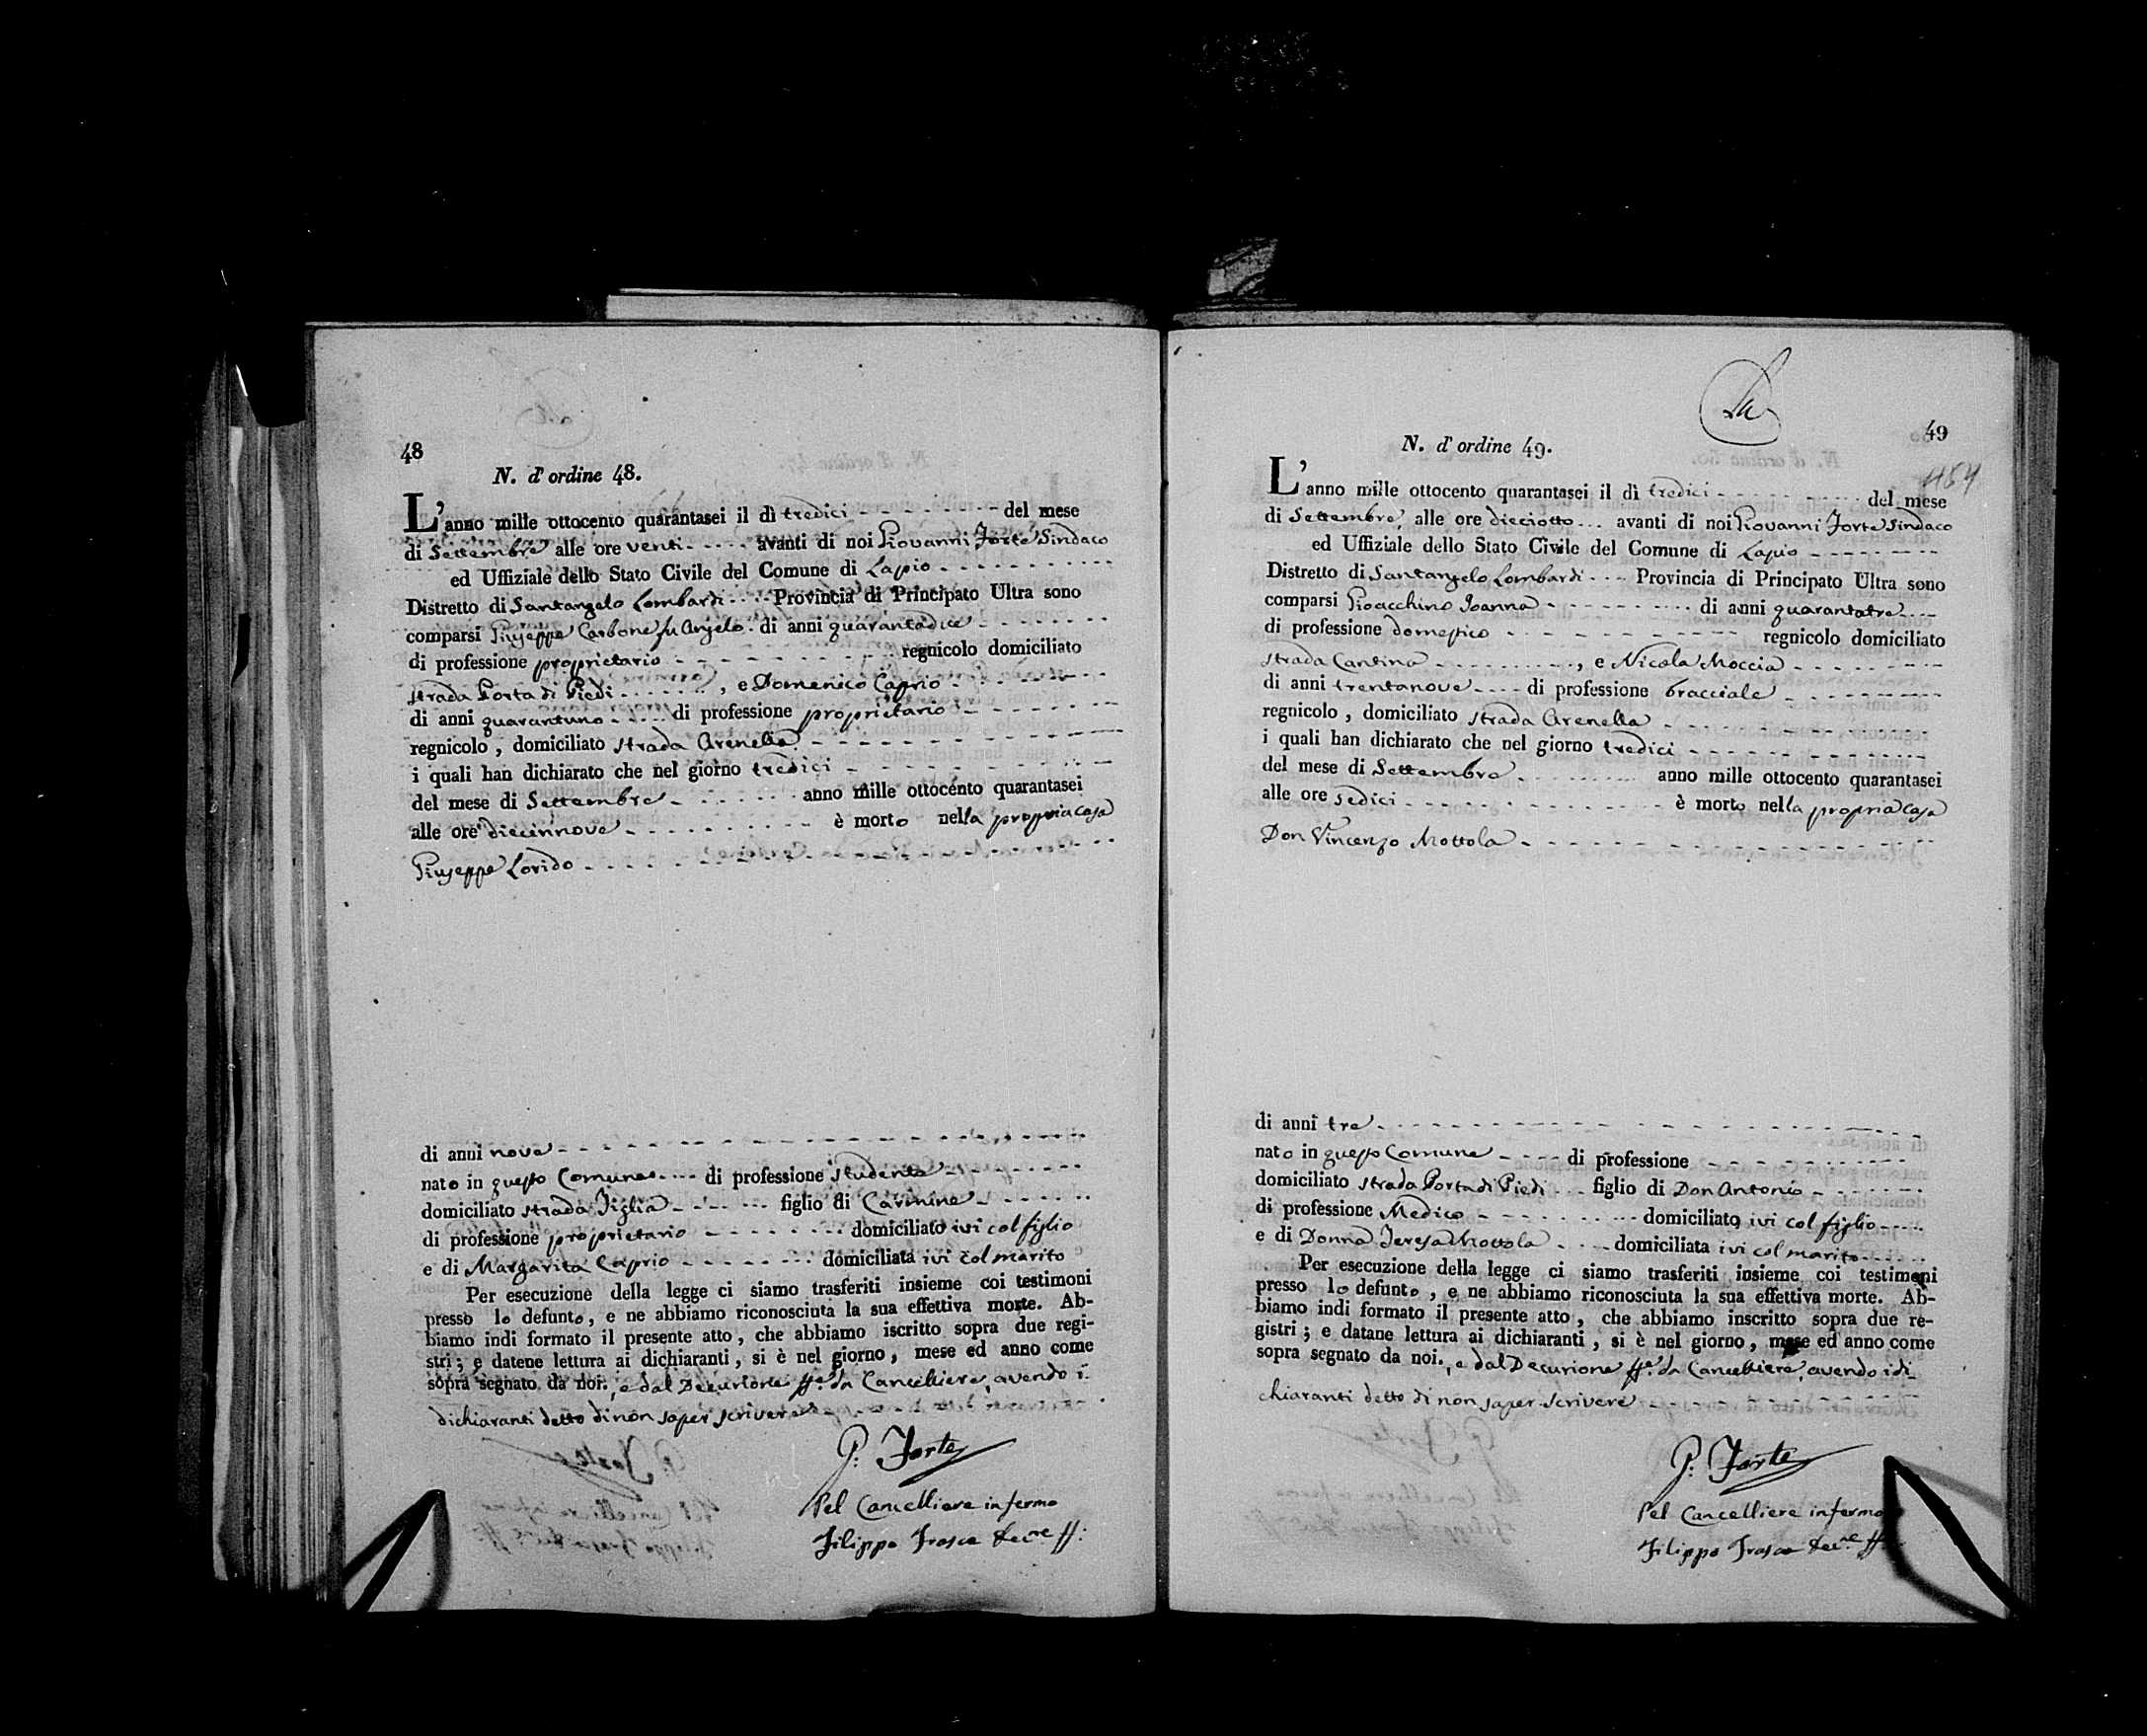 48
N. d' ordine 48.
L' anno mille ottocento quarantasei il dì tredici del mese
di Settembre alle ore venti avanti di noi Giovanni Forte Sindaco
ed Uffiziale dello Stato Civile del Comune di Lapio
Distretto di Santangelo Lombardi Provincia di Principato Ultra sono
comparsi Giuseppe Carbone fu Angelo di anni quarantadue
di professione proprietario regnicolo domiciliato
strada Porta di Piedi , e Domenico Caprio
di anni quarantuno di professione proprietario
regnicolo , domiciliato strada Arenella
i quali han dichiarato che nel giorno tredici
del mese di Settembre anno mille ottocento quarantasei
alle ore diecinnove è morto nella propria casa
Giuseppe Lorido
di anni nove
nato in questo Comune di professione studente
domiciliato strada Figlia figlio di Carmine
di professione proprietario domiciliato ivi col figlio
e di Margarita Caprio domiciliata ivi col marito
Per esecuzione della legge ci siamo trasferiti insieme coi testimoni
presso lo defunto , e ne abbiamo riconosciuta la sua effettiva morte. Ab-
biamo indi formato il presente atto , che abbiamo iscritto sopra due regi-
stri ; e datene lettura ai dichiaranti , si è nel giorno , mese ed anno come
sopra segnato da noi. , e dal Decurione ff.e da Cancelliere, avendo i
dichiaranti detto di non saper scrivere
G: Forte
Pel Cancelliere infermo
Filippo Frasca Dec.ne ff:
49
464
N. d' ordine 49.
L' anno mille ottocento quarantasei il dì tredici del mese
di Settembre alle ore dieciotto avanti di noi Giovanni Forte Sindaco
ed Uffiziale dello Stato Civile del Comune di Lapio
Distretto di Santangelo Lombardi Provincia di Principato Ultra sono
comparsi Gioacchino Joanna di anni quarantatre
di professione domestico regnicolo domiciliato
strada Cantina , e Nicola Moccia
di anni trentanove di professione bracciale
regnicolo , domiciliato strada Arenella
i quali han dichiarato che nel giorno tredici
del mese di Settembre anno mille ottocento quarantasei
alle ore sedici è morto nella propria casa
Don Vincenzo Mottola
di anni tre
nato in questo Comune di professione
domiciliato strada Porta di Piedi figlio di Don Antonio
di professione Medico domiciliato ivi col figlio
e di Donna Teresa Mottola domiciliata ivi col marito
Per esecuzione della legge ci siamo trasferiti insieme coi testimoni
presso lo defunto , e ne abbiamo riconosciuta la sua effettiva morte. Ab-
biamo indi formato il presente atto , che abbiamo inscritto sopra due re-
gistri ; e datane lettura ai dichiaranti , si è nel giorno , mese ed anno come
sopra segnato da noi. , e dal Decurione ff.e da Cancelliere, avendo i di-
chiaranti detto di non saper scrivere
G: Forte
Pel Cancelliere infermo
Filippo Frasca Dec.ne ff: